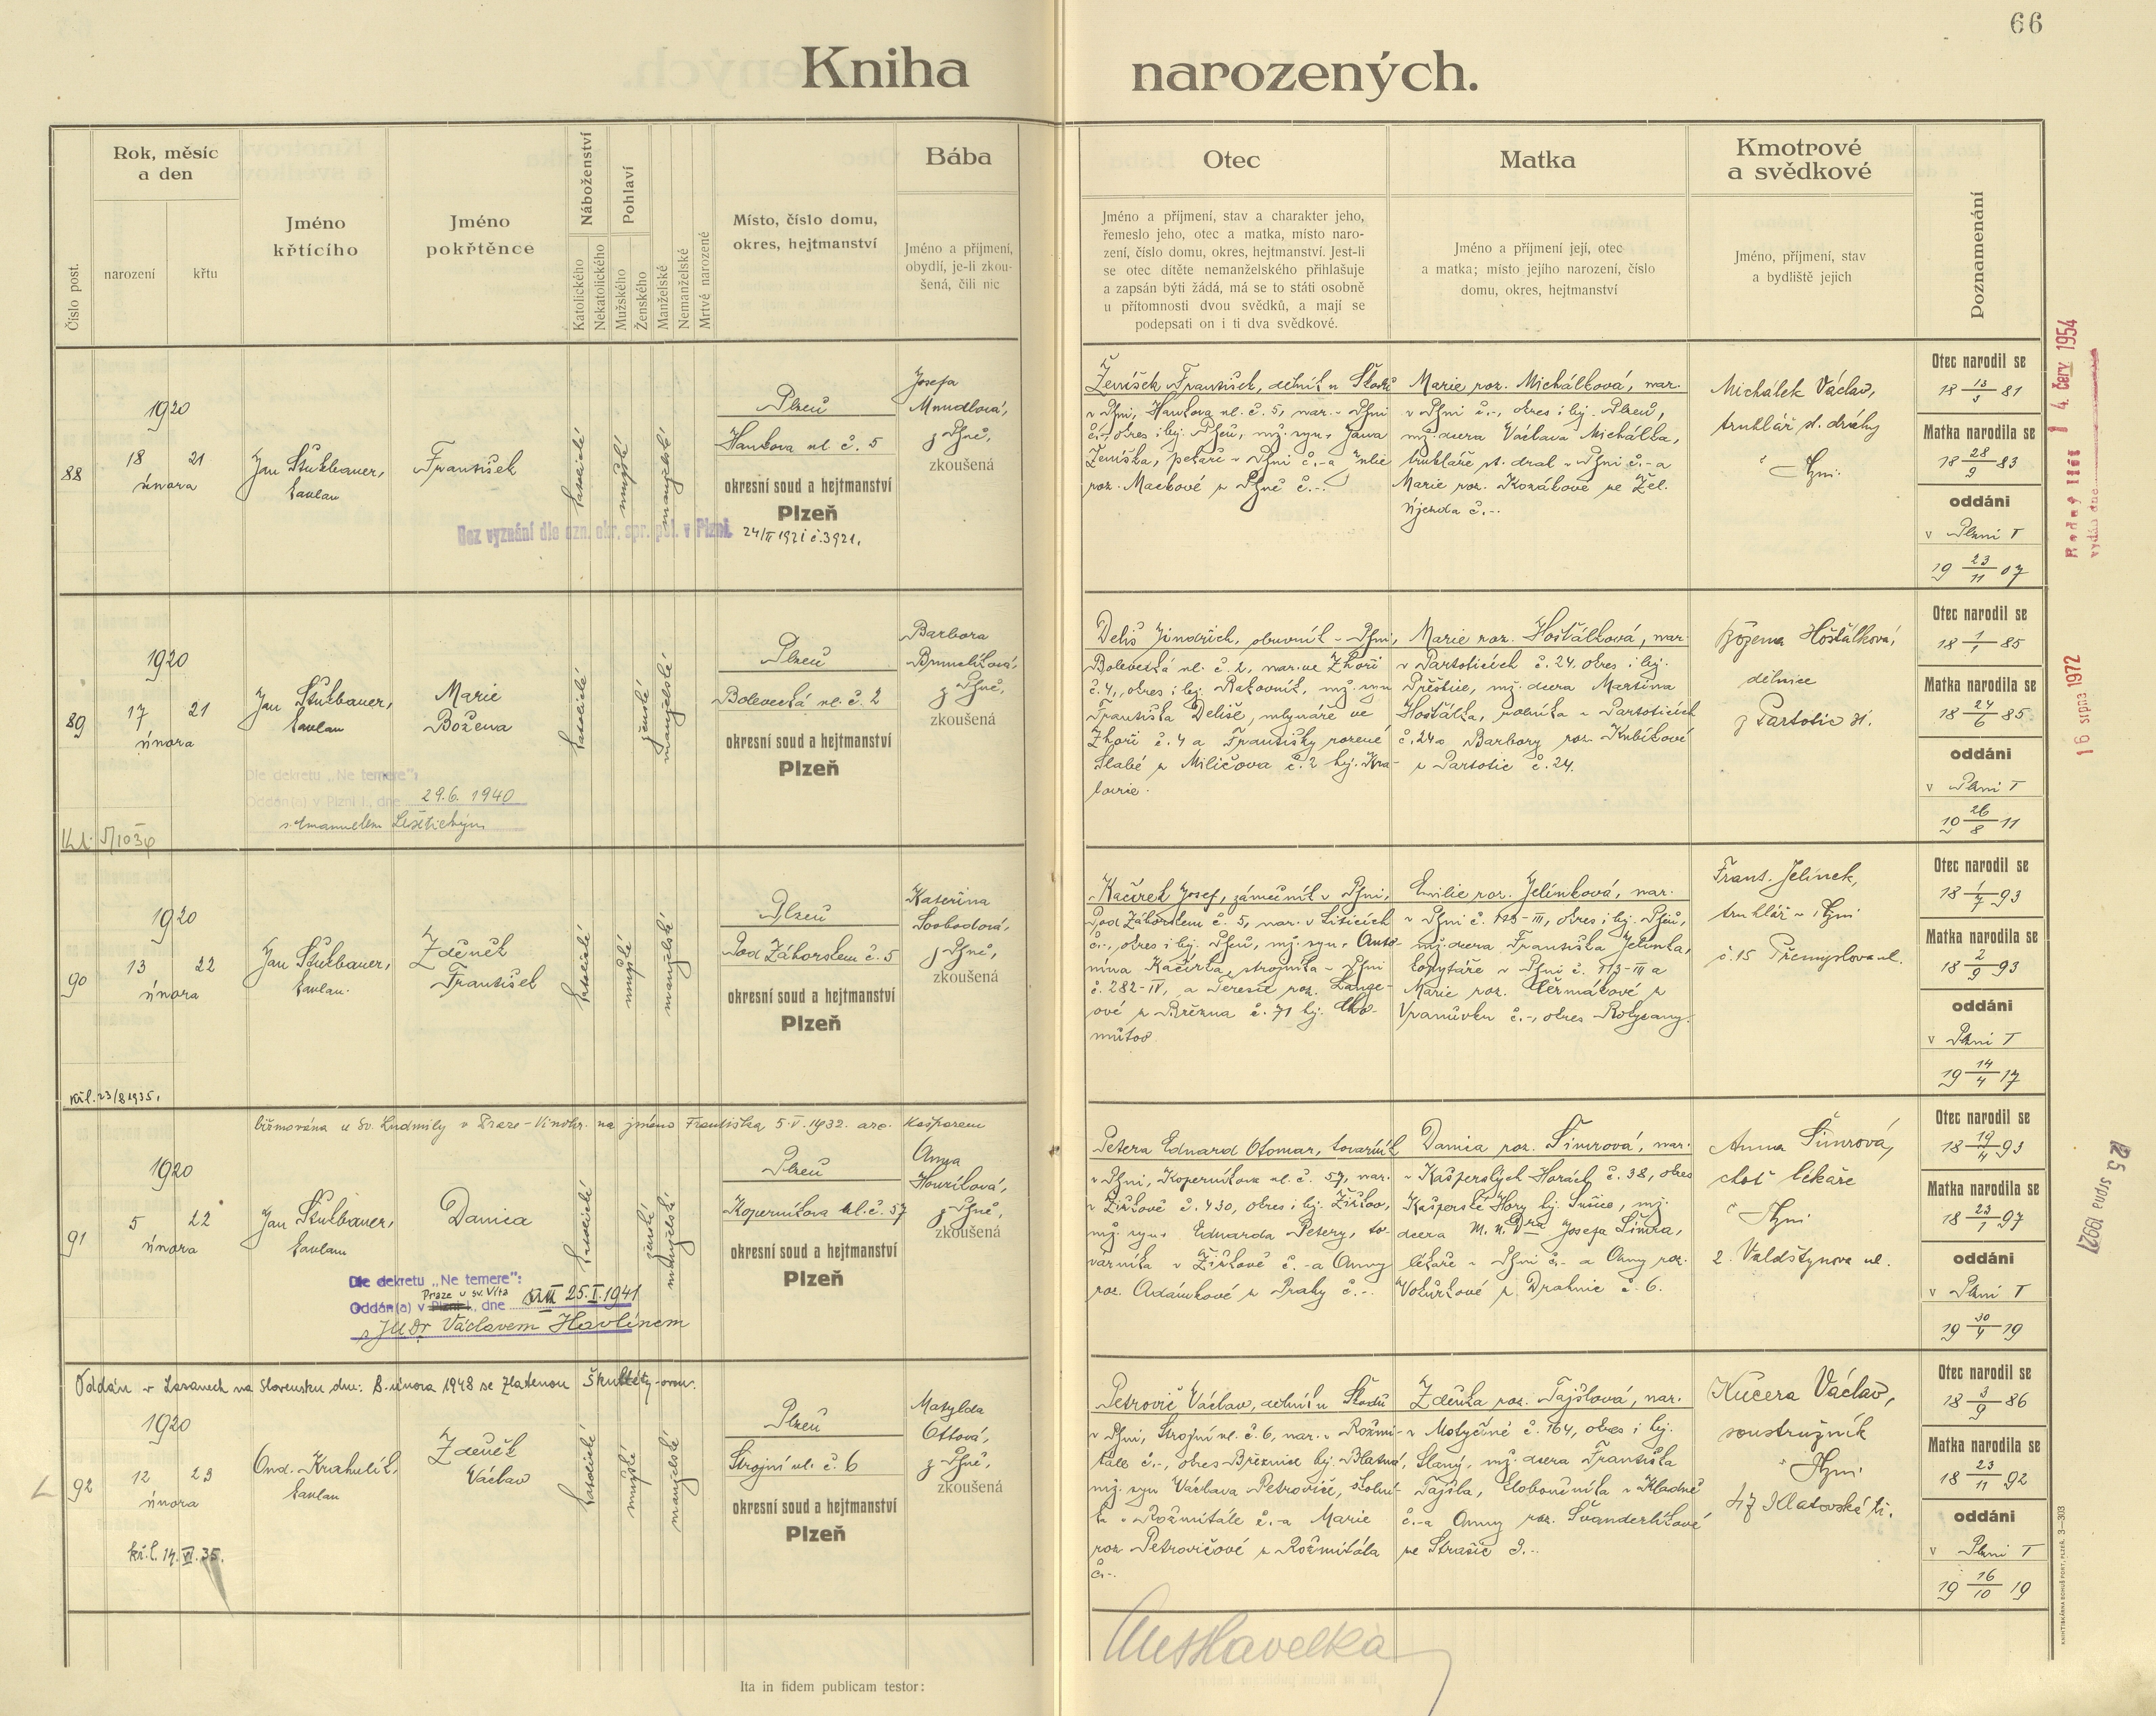 66
Kniha narozených.
Číslo post.
Rok, měsíc
a den
narození
křtu
Jméno
křtícího
Jméno
pokřtěnce
Náboženství
Katolického
Nekatolického
Pohlaví
Mužského
Ženského
Manželské
Nemanželské
Mrtvě narozené
Místo, číslo domu,
okres, hejtmanství
Bába
Jméno a příjmení,
obydlí, je-li zkou-
šená, čili nic
Otec
Jméno a příjmení, stav a charakter jeho,
řemeslo jeho, otec a matka, místo naro-
zení, číslo domu, okres, hejtmanství. Jest-li
se otec dítěte nemanželského přihlašuje
a zapsán býti žádá, má se to státi osobně
u přítomnosti dvou svědků, a mají se
podepsati on i ti dva svědkové.
Matka
Jméno a příjmení její, otec
a matka; místo jejího narození, číslo
domu, okres, hejtmanství
Kmotrové
a svědkové
Jméno, příjmení, stav
a bydliště jejich
Poznamenání
88
1920
18 21
února
Jan Štulbauer,
kaplan
František
katolické
mužské
manželské
Plzeň
Hankova ul. č. 5
okresní soud a hejtmanství
Plzeň
Bez vyznání dle ozn. okr. spr. pol. v Plzni. 24/II 1921 č. 3921.
Josefa
z Plzně,
zkoušená
Ženíšek František, dělník u Škodů
v Plzni, Hankova ul. č. 5, nar. v Plzni
č.-, okres i hej. Plzeň, mž. syn Jana
Ženíška, pekaře v Plzni č.- a Julie
roz. Mackové z Plzně č.-.
Marie roz. Michálková, nar.
v Plzni č.-, okres i hej. Plzeň,
mž. dcera Václava Michálka,
truhláře st. drah v Plzni č.- a
Marie roz. Kozákové ze Žel.
Újezda č.-.
Michálek Václav,
truhlář st. dráhy
v Plzni.
Otec narodil se
18 13/3 81
Matka narodila se
18 28/9 83
oddáni
v Plzni I
19 23/11 07
Rodný list
vydán dne
4. červ. 1954
89
1920
17 21
února
Jan Štulbauer,
kaplan
Marie
Božena
katolické
ženské
manželské
Plzeň
Bolevecká ul. č. 2
okresní soud a hejtmanství
Plzeň
Barbora
z Plzně,
zkoušená
Dle dekretu „Ne temere":
Oddán(a) v Plzni I., dne 29.6. 1940
s Emanuelem Lešetickým
Deliš Jindřich, obuvník v Plzni,
Bolevecká ul. č. 2, nar. ve Zhoři
č. 4, okres i hej. Rakovník, mž. syn
Františka Deliše, mlynáře ve
Zhoři č. 4 a Františky rozené
Slabé z Miličova č. 2 hej. Kra-
lovic.
Marie roz. Hošťálková, nar.
v Partoticích č. 24. okres i hej.
Přeštice, mž. dcera Martina
Hošťálka, rolníka v Partoticích
č. 24 a Barbory roz. Kubíkové
z Partotic č. 24.
Božena Hošťálková,
dělnice
z Partotic 21.
Otec narodil se
18 1/1 85
Matka narodila se
18 24/6 85
oddáni
v Plzni I
19 26/8 11
16 srpna 1972
90
1920
13 22
února
Jan Štulbauer,
kaplan.
Zdeněk
František
katolické
mužské
manželské
Plzeň
Pod Záhorskem č. 5
okresní soud a hejtmanství
Plzeň
Kateřina
Svobodová,
z Plzně,
zkoušená
kř. l. 23/8 1935.
Kačírek Josef, zámečník v Plzni,
Pod Záhorskem č. 5, nar. v Liticích
č.-, okres i hej. Plzeň, mž. syn Anto-
nína Kačírka, strojníka v Plzni
č. 282-IV, a Terezie roz. Lange-
ové z Března č. 71 hej. Cho-
mutov.
Emilie roz. Jelínková, nar.
v Plzni č. 113-III, okres i hej. Plzeň,
mž. dcera Františka Jelínka,
kopytáře v Plzni č. 113-III a
Marie roz. Heřmákové z
Vranůvku č.-, okres Rokycany.
Frant. Jelínek,
truhlář v Plzni
č. 15 Přemyslova ul.
Otec narodil se
18 1/7 93
Matka narodila se
18 2/9 93
oddáni
v Plzni I
19 14/4 17
biřmována u Sv. Ludmily v Praze-Vinohr. na jméno Františka 5.V.1932. arc. Kašparem
91
1920
5 22
února
Jan Štulbauer,
kaplan
Danica
katolické
ženské
manželské
Plzeň
Koperníkova ul. č. 57
okresní soud a hejtmanství
Plzeň
Anna
Houzíková,
z Plzně,
zkoušená
Dle dekretu „Ne temere":
Praze u sv. Víta
Oddán(a) v Plzni I., dne 25.I.1941
s JUDr Václavem Havlínem
Petera Eduard Otomar, továrník
v Plzni, Koperníkova ul. č. 57, nar.
v Žižkově č. 430, okres i hej. Žižkov,
mž. syn Eduarda Petery, to-
várníka v Žižkově č. - a Anny
roz. Adámkové z Prahy č.-.
Danica roz. Šimrová, nar.
v Kašperských Horách č. 38, okres
Kašperské Hory hej. Sušice, mž.
dcera M. U. Dra Josefa Šimra,
lékaře v Plzni č.- a Anny roz.
Vokurkové z Drahnic č. 6.
Anna Šimrová,
choť lékaře
v Plzni
2. Valdštýnova ul.
Otec narodil se
18 19/4 93
Matka narodila se
18 23/1 97
oddáni
v Plzni I
19 30/4 19
25 srpna 1992
Oddán v Lazanech na Slovensku dne: 8. února 1948 se Zlatenou Škultéty-ovou.
92
1920
12 23
února
Ond. Krahulík,
kaplan
Zdeněk
Václav
katolické
mužské
manželské
Plzeň
Strojní ul. č. 6
okresní soud a hejtmanství
Plzeň
Matylda
Ottová,
z Plzně,
zkoušená
kř. l. 14. VI. 35.
Petrovič Václav, dělník u Škodů
v Plzni, Strojní ul. č. 6, nar. v Rožmi-
tále č.-, okres Březnice hej. Blatná,
mž. syn Václava Petroviče, školní-
ka v Rožmitále č.- a Marie
roz. Petrovičové z Rožmitála
č.-.
Zdeňka roz. Tajšlová, nar.
v Motyčíně č. 164, okres i hej.
Slaný, mž. dcera Františka
Tajšla, kloboučníka v Kladně
č.- a Anny roz. Švanderlíkové
ze Strašic č.-.
Kučera Václav,
soustružník
v Plzni
47 Klatovská tř.
Otec narodil se
18 3/9 86
Matka narodila se
18 23/11 92
oddáni
v Plzni I
19 16/10 19
Ita in fidem publicam testor: